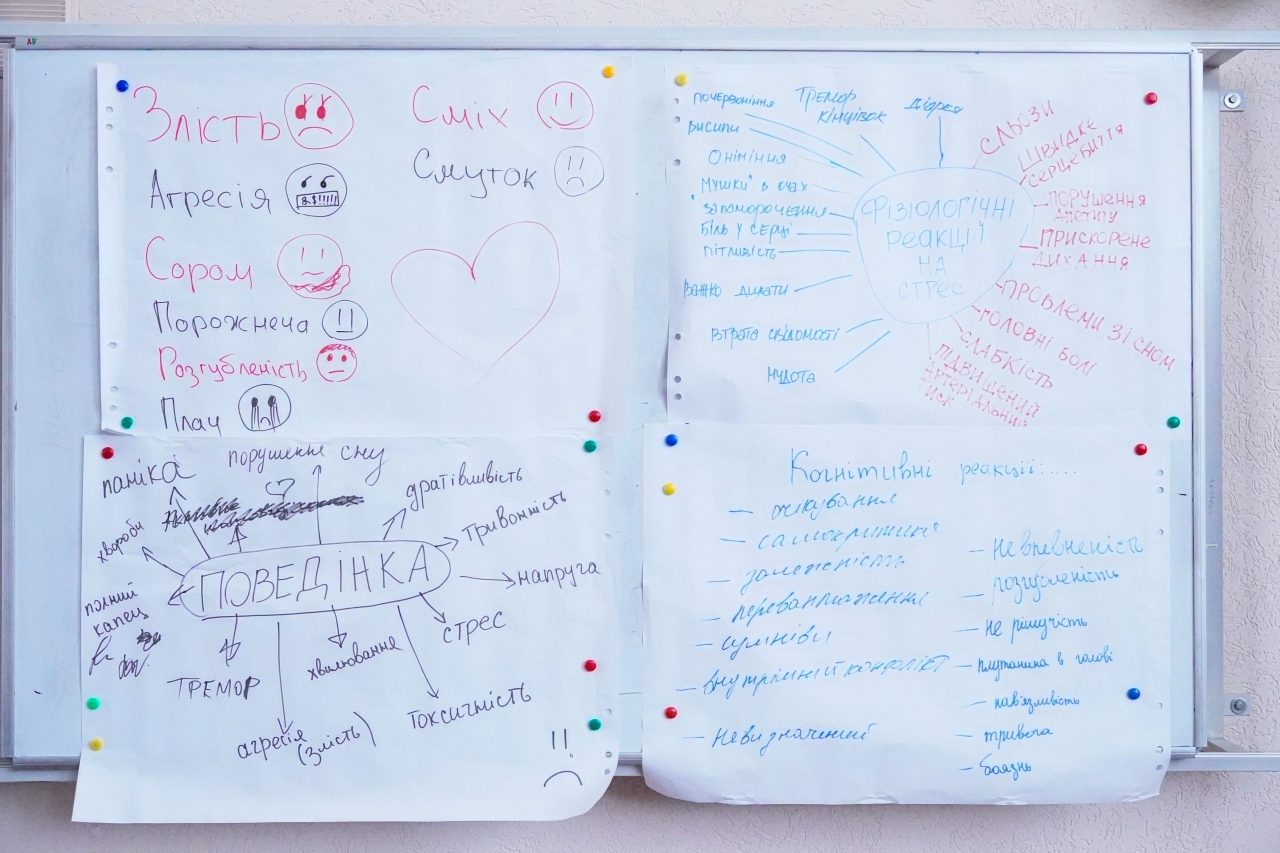 Злість
Агресія
Сором
Порожнеча
Розгубленість
Плач
Сміх
Смуток
почервоніння
висипи
оніміння
"мушки" в очах
запаморочення
біль у серці
пітливість
важко дихати
втрата свідомості
нудота
ТРЕМОР
КІНЦІВОК
діарея
СЛЬОЗИ
ШВИДКЕ
СЕРЦЕБИТТЯ
ПОРУШЕННЯ
АПЕТИТУ
ПРИСКОРЕНЕ
ДИХАННЯ
ПРОБЛЕМИ ЗІ СНОМ
ГОЛОВНІ БОЛІ
СЛАБКІСТЬ
ПІДВИЩЕНИЙ
АРТЕРІАЛЬНИЙ
ТИСК
ФІЗІОЛОГІЧНІ
РЕАКЦІЇ
НА
СТРЕС
паніка
порушення сну
дратівливість
тривожність
напруга
стрес
токсичність
хвилювання
агресія
(злість)
ТРЕМОР
повний
капец
хвороби
ПОВЕДІНКА
!!
Когнітивні реакції:....
— очікування
— самокритика
— залежність
— перевантаження
— сумніви
— внутрішній конфлікт
— невизначений
— невпевненість
— розгубленість
— не рішучість
— плутанина в голові
— нав'язливість
— тривога
— боязнь